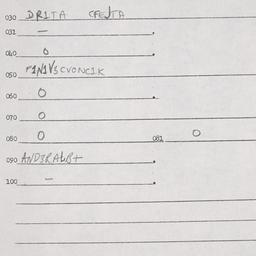 030 DRITA CFEJTA
031 –
040 0
050
060 0
070 0
080 0 081 0
090
100 –